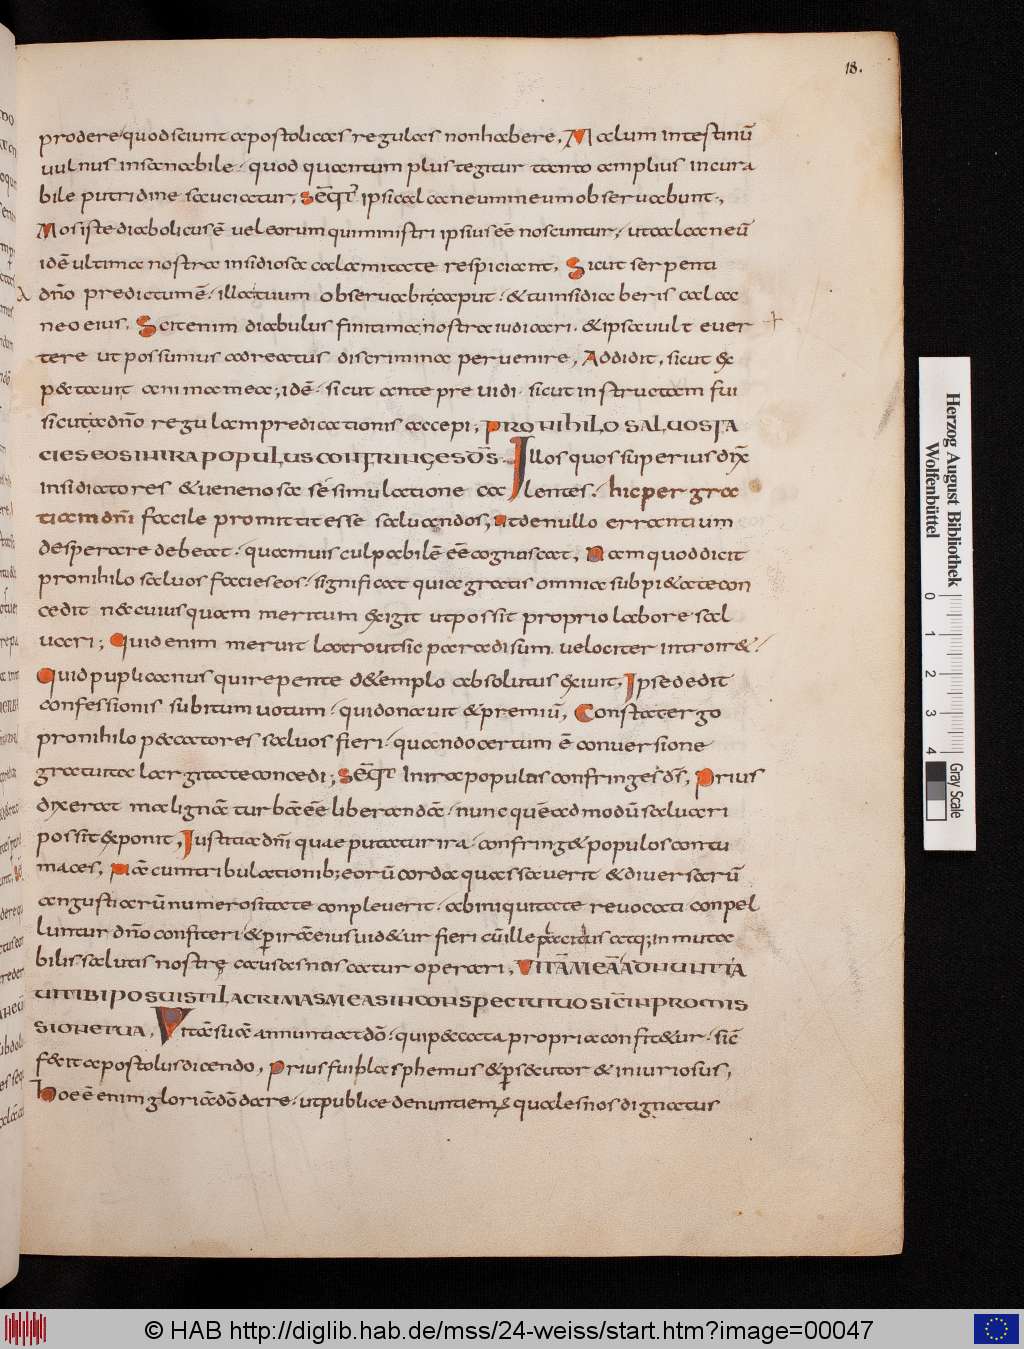 18.
prodere quod sciunt apostolicas regulas non habere, Malum intestinū
vulnus insanabile· quod quantum plus tegitur tanto amplius incura
bile putridine sauciatur, Seqt̄ ipsi calcaneum meum observabunt,
Mos iste diabolicus ē vel eorum qui ministri ipsius eē noscuntur, ut calcaneū
idē ultima nostra insidiosa calamitate respiciant, Sicut serpenti
dn̄o predictum ē· illa tuum observabit caput· & tu insidiaberis calca
neo eius, Scit enim diabulus finitima nostra iudicari· & ipsa vult ever
tere ut possumus ad reatus discrimina pervenire, Addidit, sicut ex
p&tavit anima mea; idē· sicut ante previdi· sicut instructam fui
sicut a dn̄o regulam predicationis accepi, PRO NIHILO SALVOS FA
CIES EOS IN IRA POPULUS CONFRINGES DS̄· Illos quos superius dix̄
insidiatores & venenosa sē simulatione calentes· hic per gra
tiam dn̄i facile promittit esse salvandos, ut de nullo errantium
desperare debeat· quamuis culpabilē eē cognascat, Nam quod dicit
pro nihilo salvos facies eos· significat quia gratis omnia sub pi&ate con
cedit nec cuiusquam meritum exigit ut possit proprio labore sal
vari; Quid enim meruit latro ut sic paradisum velociter introir&·
Quid puplicanus qui repente de templo absolutus exivit, Ipse dedit
confessionis subitum votum· qui donavit & premiū, Constat ergo
pro nihilo peccatores salvos fieri· quando certum ē conversione
gratuita largitate concedi; Seqt̄ In ira populus confringes ds̄, Prius
dixerat maligna turba eē liberandā· nunc quēadmodū salvari
possit exponit, Iustitia dn̄i quae putatur ira· confring& populos contu
maces; Nā cum tribulationib; eorū corda quassaverit & diversarū
angustiarū numerositate conpleverit· ab iniquitate revocati conpel
luntur dn̄o confiteri· & p irā eius vid&ur fieri cū ille placidus atq; inmuta
bilis salutis nostrę causas nascatur operari, VITĀ MEĀ ADNUNTIA
VI TIBI POSUISTI LACRIMAS MEAS IN CONSPECTU TUO SIC̄ IN PROMIS
SIONE TUA, Vitā suā annuntiat dō· qui peccata propria confit&ur· sic̄
fecit apostolus dicendo, Prius fui blasphemus & ps&cutor & iniuriosus,
Hoc ē enim gloriā dō dare· ut publice denuntiem; quales nos dignatus
Herzog August Bibliothek
Wolfenbüttel
0 1 2 3 4
Gray Scale
© HAB http://diglib.hab.de/mss/24-weiss/start.htm?image=00047